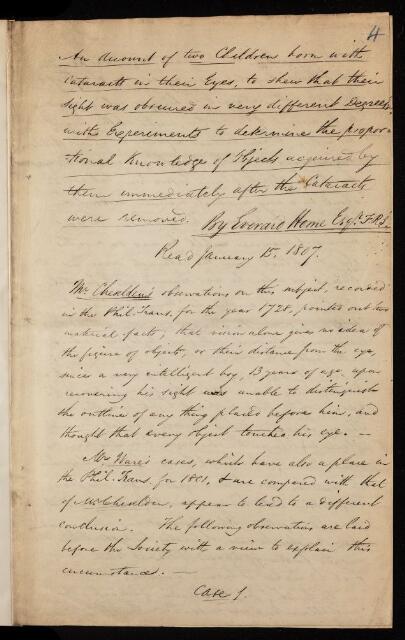 4
An Account of two Children born with
Cataracts in their Eyes, to shew that their
sight was obscured in very different Degrees;
with Experiments to determine the propor-
tional Knowledge of Objects acquired by
them immediately after the Cataracts
were removed. By Everard Home Esqr. F.R.S.
Read January 15. 1807.
Mr. Cheselden's observations on this subject, recorded
in the Phil. Trans. for the year 1728, pointed out two
material facts; that vision alone gives no idea of
the figure of objects, or their distance from the eye,
since a very intelligent boy, 13 years of age, upon
recovering his sight was unable to distinguish
the outline of any thing placed before him, and
thought that every object touched his eye. —
Mr. Ware's cases, which have also a place in
the Phil. Trans. for 1801, & are compared with that
of Mr. Cheselden, appear to lead to a different
conclusion. The following observations are laid
before the Society with a view to explain this
circumstance. —
Case 1.